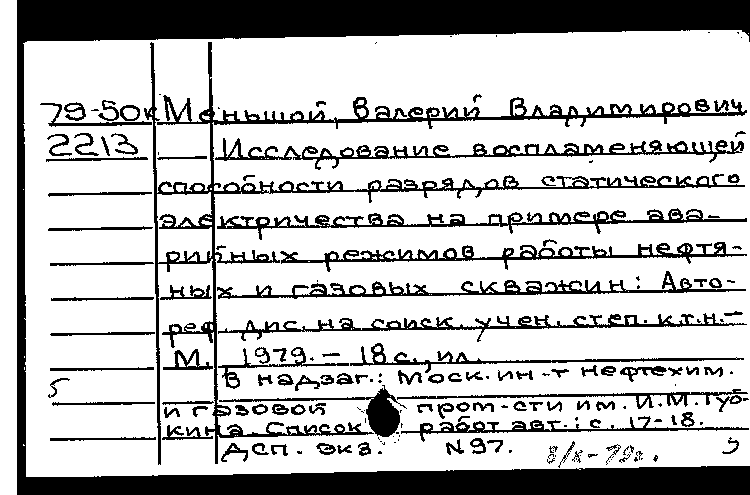 79-50к Меньшой, Валерий Владимирович
2213 Исследование воспламеняющей
способности разрядов статического
электричества на примере ава-
рийных режимов работы нефтя-
ных и газовых скважин: Авто-
реф. дис. на соиск. учен. степ. к.т.н.-
М. 1979. - 18 с., ил.
В надзаг.: Моск. ин-т нефтехим.
5
и газовой пром-сти им. И.М. Губ-
кина. Список работ авт.: с. 17-18.
ДСП. экз. N97. 8/X-79г.